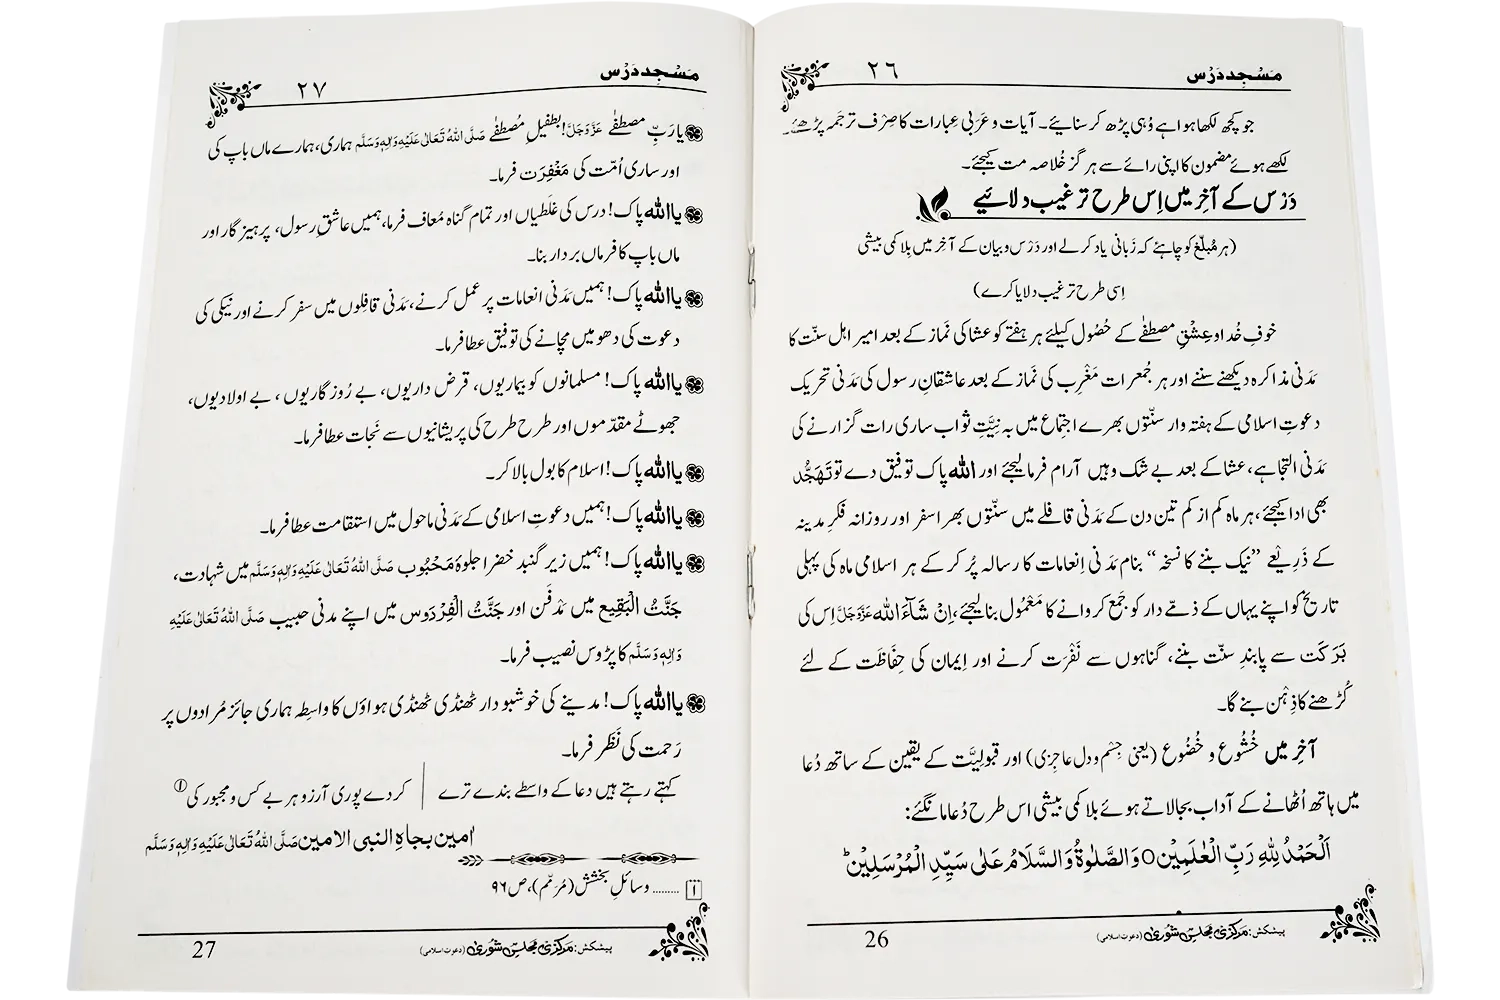 مَسْجِد دَرْس
۲٦
جو کچھ لکھا ہوا ہے وُہی پڑھ کر سنائیے۔ آیات و عَرَبی عِبارات کا صِرْف ترجَمہ پڑھئے۔
لکھے ہوئے مضمون کا اپنی رائے سے ہر گز خُلاصہ مت کیجئے۔
دَرْس کے آخِر میں اِس طرح ترغیب دلائیے
(ہر مُبلّغ کو چاہئے کہ زَبانی یاد کر لے اور دَرْس و بیان کے آخر میں بِلا کمی بیشی
اِسی طرح ترغیب دلایا کرے)
خوفِ خُدا و عِشْقِ مصطفٰے کے حُصُول کیلئے ہر ہفتے کو عشا کی نَماز کے بعد امیر اہل سنّت کا
مَدَنی مذاکرہ دیکھنے سننے اور ہر جُمعرات مَغْرِب کی نَماز کے بعد عاشقانِ رسول کی مَدَنی تحریک
دعوتِ اسلامی کے ہفتہ وار سنّتوں بھرے اجتماع میں بہ نِیَّتِ ثواب ساری رات گزارنے کی
مَدَنی التجا ہے، عشا کے بعد بے شک وہیں آرام فرما لیجئے اور اللہ پاک توفیق دے تو تَہَجُّد
بھی ادا کیجئے، ہر ماہ کم از کم تین دن کے مَدَنی قافلے میں سنّتوں بھرا سفر اور روزانہ فکرِ مدینہ
کے ذَرِیعے ”نیک بننے کا نسخہ“ بنام مَدَنی اِنعامات کا رسالہ پُر کر کے ہر اسلامی ماہ کی پہلی
تاریخ کو اپنے یہاں کے ذمّے دار کو جَمْع کروانے کا مَعْمُول بنا لیجئے، اِنْ شَآءَ اللہ عَزَّوَجَلَّ اِس کی
بَرَکت سے پابندِ سنّت بننے، گناہوں سے نَفْرَت کرنے اور اِیمان کی حِفاظَت کے لئے
کُڑھنے کا ذِہْن بنے گا۔
آخِر میں خُشُوع و خُضُوع (یعنی جِسْم و دل عاجِزی) اور قبولِیَّت کے یقین کے ساتھ دُعا
میں ہاتھ اُٹھانے کے آداب بجا لاتے ہوئے بلا کمی بیشی اس طرح دُعا مانگئے:
اَلْحَمْدُ لِلّٰهِ رَبِّ الْعٰلَمِیْنَ وَالصَّلٰوةُ وَالسَّلَامُ عَلٰی سَیِّدِ الْمُرْسَلِیْنَ ؕ
پیشکش: مَرکزی مجلسِ شُوریٰ (دعوتِ اسلامی)
26
مَسْجِد دَرْس
۲۷
یا رَبِّ مصطفٰے عَزَّوَجَلَّ! بطفیلِ مُصطفٰے صَلَّی اللہُ تَعَالٰی عَلَیْہِ وَاٰلِہٖ وَسَلَّم ہماری، ہمارے ماں باپ کی
اور ساری اُمّت کی مَغْفِرَت فرما۔
یا اللہ پاک! درس کی غَلَطیاں اور تمام گناہ مُعاف فرما، ہمیں عاشقِ رسول، پرہیزگار اور
ماں باپ کا فرماں بردار بنا۔
یا اللہ پاک! ہمیں مَدَنی انعامات پر عمل کرنے، مَدَنی قافِلوں میں سفر کرنے اور نیکی کی
دعوت کی دھومیں مچانے کی توفیق عطا فرما۔
یا اللہ پاک! مسلمانوں کو بیماریوں، قرض داریوں، بے رُوزگاریوں، بے اولادیوں،
جھوٹے مقدّموں اور طرح طرح کی پریشانیوں سے نَجات عطا فرما۔
یا اللہ پاک! اسلام کا بول بالا کر۔
یا اللہ پاک! ہمیں دعوتِ اسلامی کے مَدَنی ماحول میں استقامت عطا فرما۔
یا اللہ پاک! ہمیں زیرِ گنبد خضرا جلوۂ مَحْبُوب صَلَّی اللہُ تَعَالٰی عَلَیْہِ وَاٰلِہٖ وَسَلَّم میں شہادت،
جَنَّتُ الْبَقِیع میں مَدْفَن اور جَنَّتُ الْفِرْدَوس میں اپنے مدنی حبیب صَلَّی اللہُ تَعَالٰی عَلَیْہِ
وَاٰلِہٖ وَسَلَّم کا پڑوس نصیب فرما۔
یا اللہ پاک! مدینے کی خوشبودار ٹھنڈی ٹھنڈی ہواؤں کا واسِطہ ہماری جائز مُرادوں پر
رَحمت کی نَظَر فرما۔
کہتے رہتے ہیں دعا کے واسطے بندے ترے کر دے پوری آرزو ہر بے کس و مجبور کی ①
اٰمین بجاہِ النبی الامین صَلَّی اللہُ تَعَالٰی عَلَیْہِ وَاٰلِہٖ وَسَلَّم
١ ........ وسائلِ بخشش (مُرَمّم)، ص ۹٦
پیشکش: مَرکزی مجلسِ شُوریٰ (دعوتِ اسلامی)
27